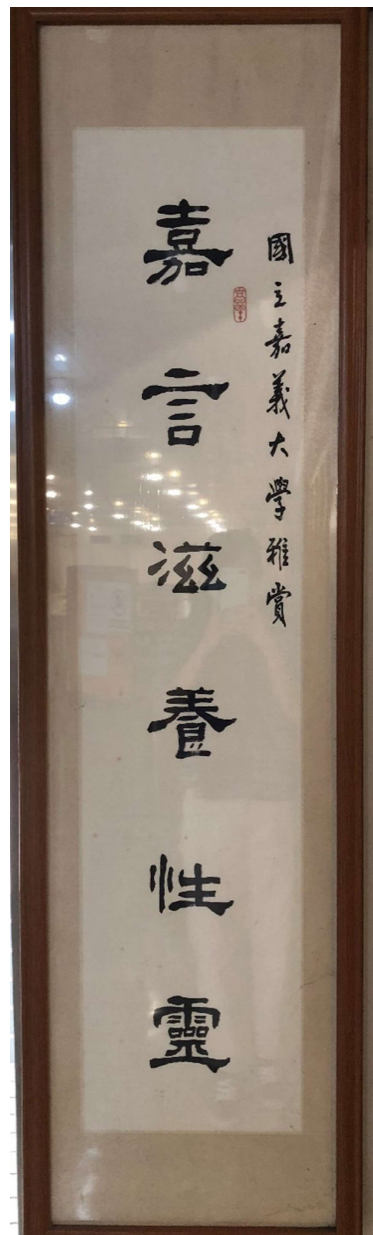 國立嘉義大學雅賞
嘉言滋養性靈